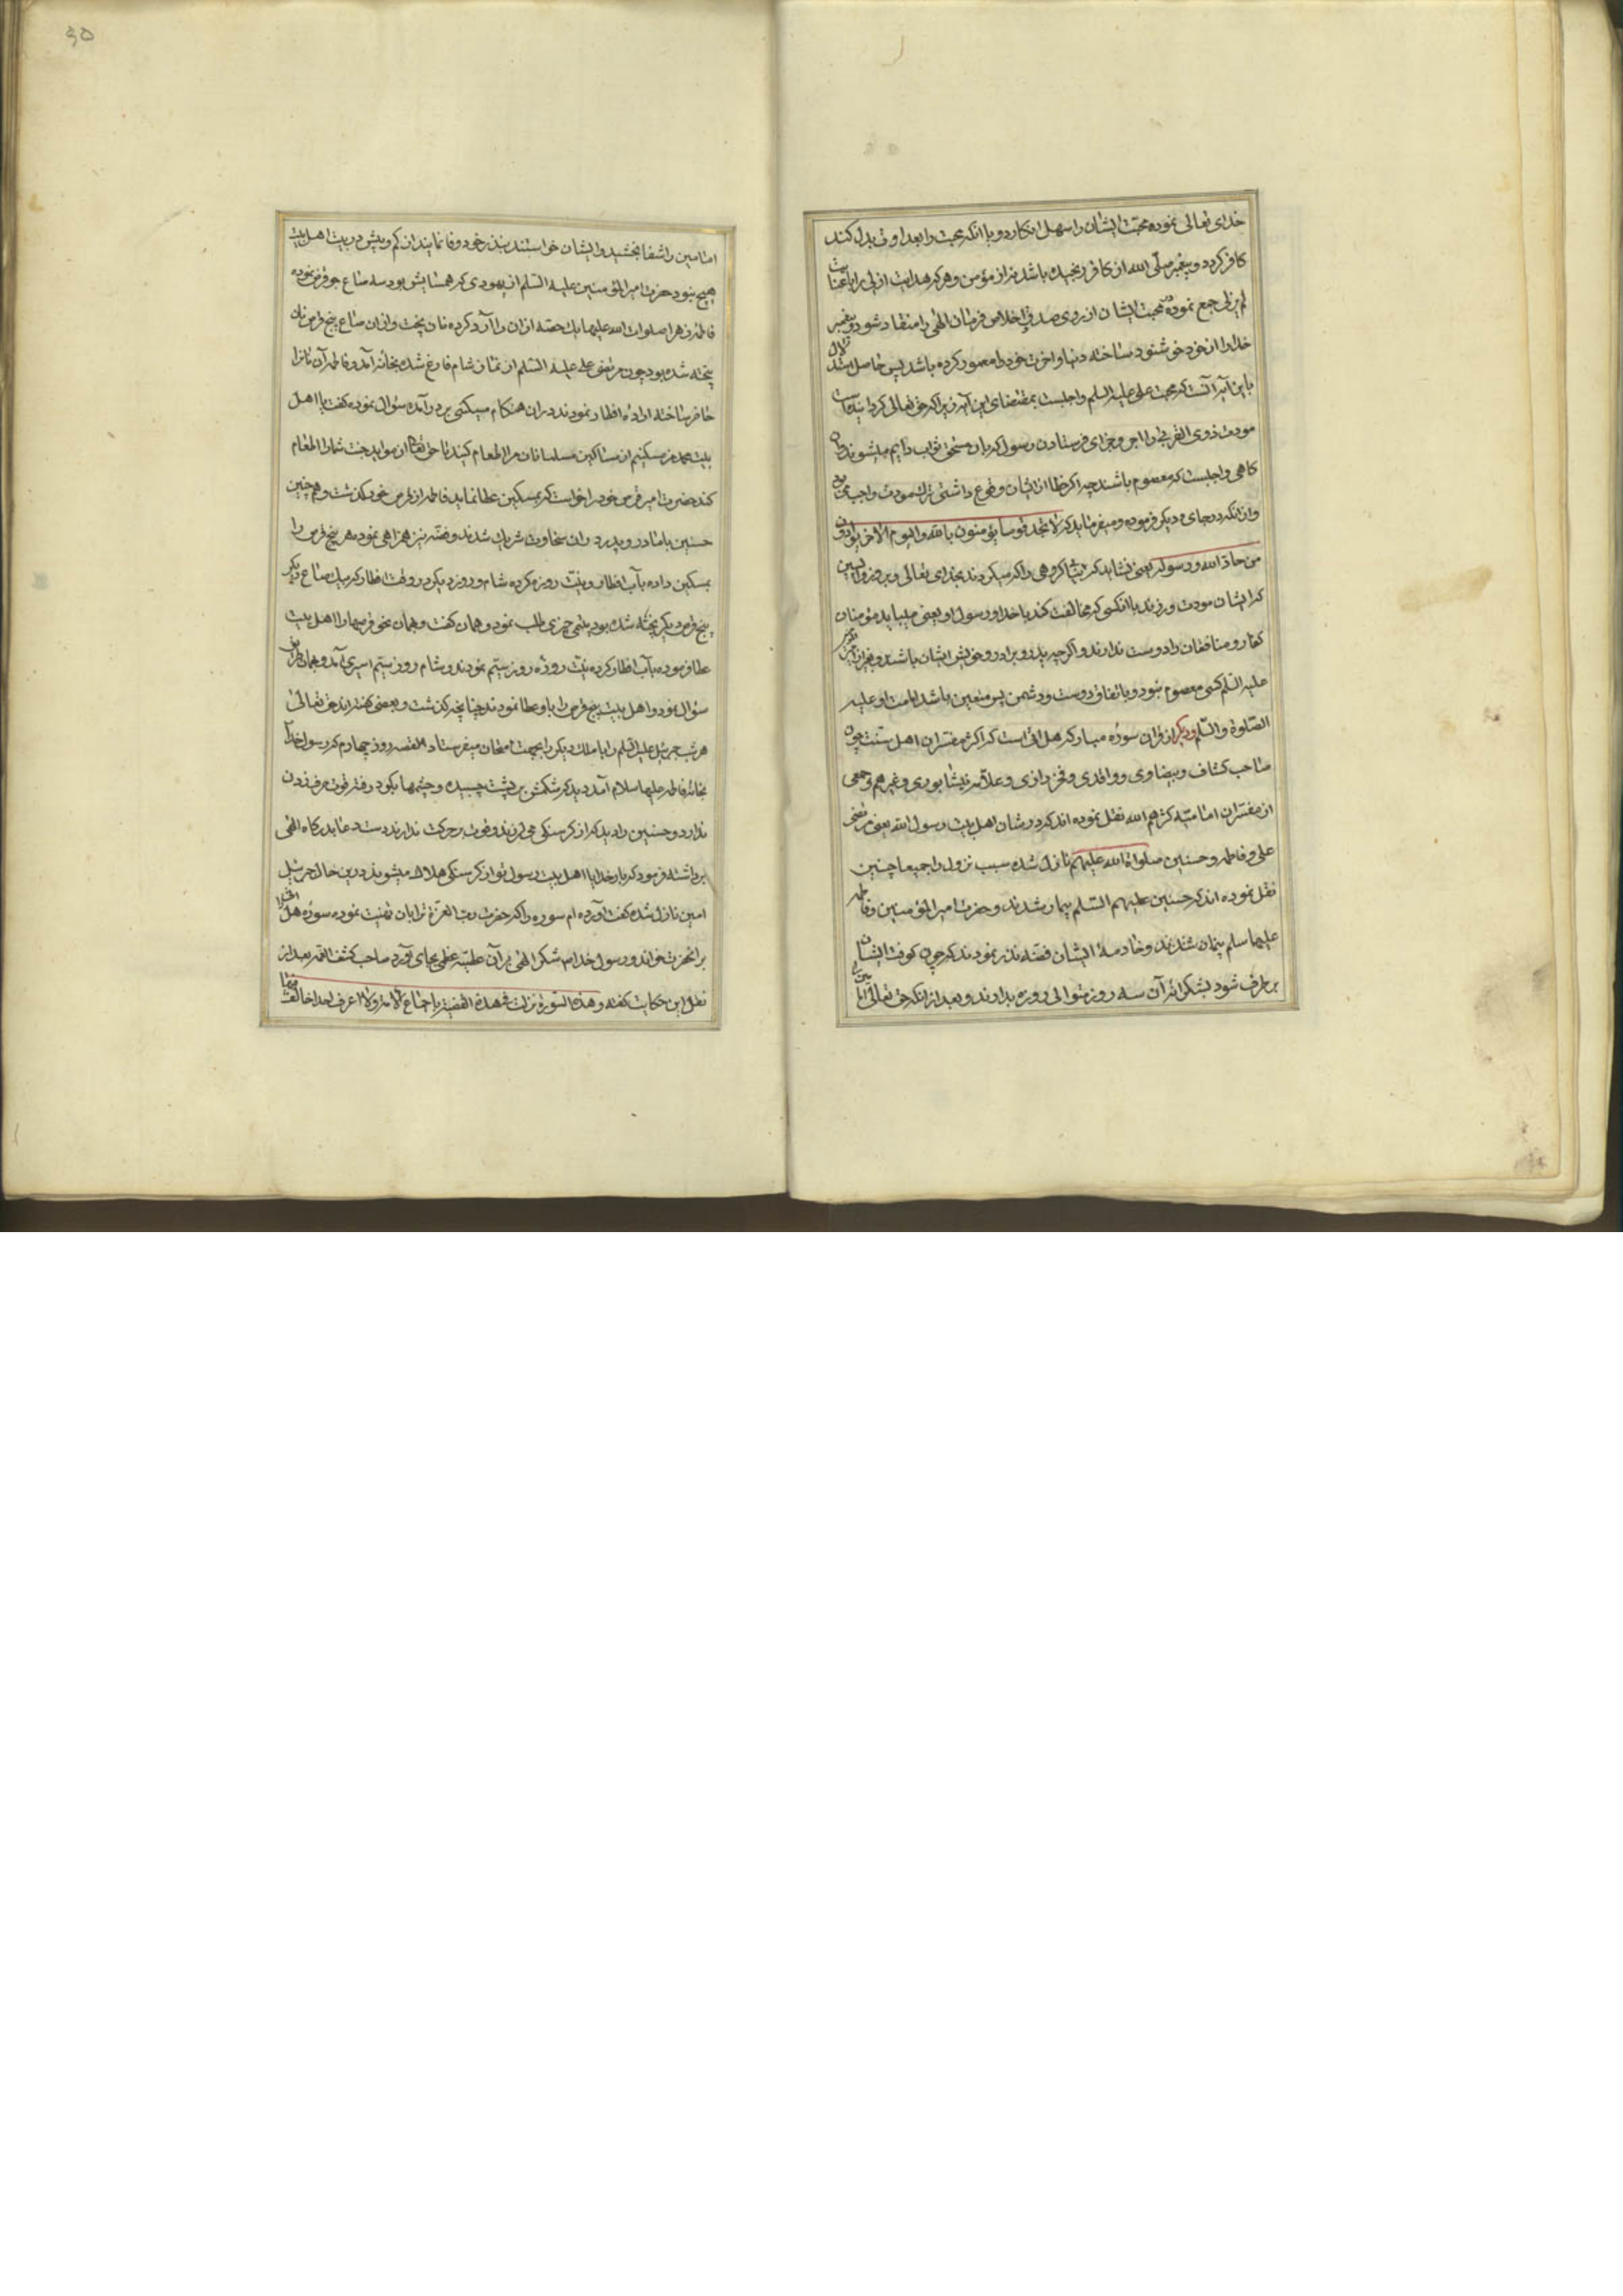 خدای تعالی نموده محبت ایشان را سهل انکارد و یا انکه محبت را بعداوت بدل کند
کافر کردد و پیغمبر صلی الله از کافر رنجیده باشد نه از مؤمن و هر که هدایت ازلی را با عنایت
لم یزلی جمع نموده محبت ایشان از روی صدق و اخلاص فرمان الهی را منقاد شود و پیغمبر
خدا را از خود خوشنود ساخته دنیا و اخرت خود را معمور کرده باشد پس حاصل استدلال
باین آیه آنست که محبت علی علیه السلم واجبست بمقتضای این آیه زیرا که حق تعالی کردانیده است
مودت ذوی القربی را اجر و جزای فرستادن و رسول که بان مستحق ثواب دایم میشوند و ان
کاهی واجبست که معصوم باشند چه اکر خطا از ایشان وقوع داشتی ترک مودت واجب می بود
و از انکه در جای دیکر فرموده و میفرماید که لا تجد قوما یؤمنون بالله والیوم الاخر یوادون
من حاد الله و رسوله یعنی نشاید که بیابی کروهی را که میکروند بخدای تعالی و بروز واپسین
که ایشان مودت ورزند با انکسی که مخالفت کند با خدا و رسول او یعنی میباید مؤمنان
کفار و منافقان را دوست ندارند و اکرچه پدر و برادر و خویش ایشان باشند و بغیر از امیر
علیه السلم کسی معصوم نبود و باتفاق دوست و دشمن پس متعین باشد امامت او علیه
الصلوة والسلم و دیکر از قران سوره مبارکه هل اتی است که اکثر مفسران اهل سنت چون
صاحب کشاف و بیضاوی و واقدی و فخر رازی و علامه نیشابوری و غیرهم و جمعی
از مفسران امامیه کثرهم الله نقل نموده اند که در شان اهل بیت رسول الله یعنی مرتضی
علی و فاطمه و حسنین صلواة الله علیهم نازل شده سبب نزول را جمیعا چنین
نقل نموده اند که حسنین علیهم السلم بیمار شدند و حضرت امیر المؤمنین و فاطمه
علیها سلم و خادمهٔ ایشان فضه نذر نمودند که چون کوفت ایشان
برطرف شود بشکرانه آن سه روز متوالی روزه بدارند و بعد از انکه حق تعالی
امامین را شفا بخشید و ایشان خواستند بنذر خود وفا نمایند از کم و بیش در بیت اهل بیت
هیچ نبود حضرت امیر المؤمنین علیه السلم از یهودی که همسایش بود سه صاع جو قرض نموده
فاطمه زهرا صلوات الله علیها یک حصه ازان را آرد کرده نان پخت و ازان صاع پنج قرص نان
پخته شده بود چون مرتضی علی علیه السلم از نماز شام فارغ شده بخانه آمد و فاطمه آن نانرا
حاضر ساخته اراده افطار نمودند دران هنکام مسکینی بر در آمده سؤال نموده کفت یا اهل
بیت محمد من مسکینم از مساکین مسلمانان مرا اطعام کنید تا حق تعالی از مواید جنت شما را اطعام
کند حضرت امیر قرص خود را خواست که بمسکین عطا نماید فاطمه از قرص خود کذشت و همچنین
حسنین با مادر و پدر دران سخاوت شریک شدند و فضه نیز همراهی نموده هر پنج قرص را
بمسکین داده بآب افطار و نیت روزه کرده شام و روز دیکر در وقت افطار که یک صاع دیکر
پنج قرص دیکر پخته شده بود یتیمی چیزی طلب نمود و همان کفت و همان نحو قرصها را اهل بیت
عطا فرموده بآب افطار کرده نیت روزه روز سیم نمودند و شام روز سیم اسیری آمد و همان طریق
سؤال نمود و اهل بیت پنج قرص را باو عطا نمودند چنانچه کذشت و بعضی کفته اند حق تعالی
هر شب جبرئیل علیه السلم را یا ملک دیکر را بجهت امتحان میفرستاد القصه روز چهارم که رسول خدا
بخانه فاطمه علیها سلام آمد دید که شکمش بر پشت چسبیده و چشمها بکود رفته قوت حرف زدن
ندارد و حسنین را دید که از کرسنکی می لرزند و قوت حرکت ندارند دست دعا بدرکاه الهی
برداشته فرمود که بار خدایا اهل بیت رسول تو از کرسنکی هلاک میشوند درین حال جبرئیل
امین نازل شده کفت آورده ام سوره را که حضرت رب العزة ترا بان تهنیت نموده سوره هل اتی را
بر انحضرت خواند و رسول خدا شکر الهی بر آن عطیه عظمی بجای آورد صاحب کشف الغمه بعد از
نقل این حکایت کفته و هذه السورة نزلت فی هذه القضیة باجماع الامة ولا اعرف احدا خالف فیها